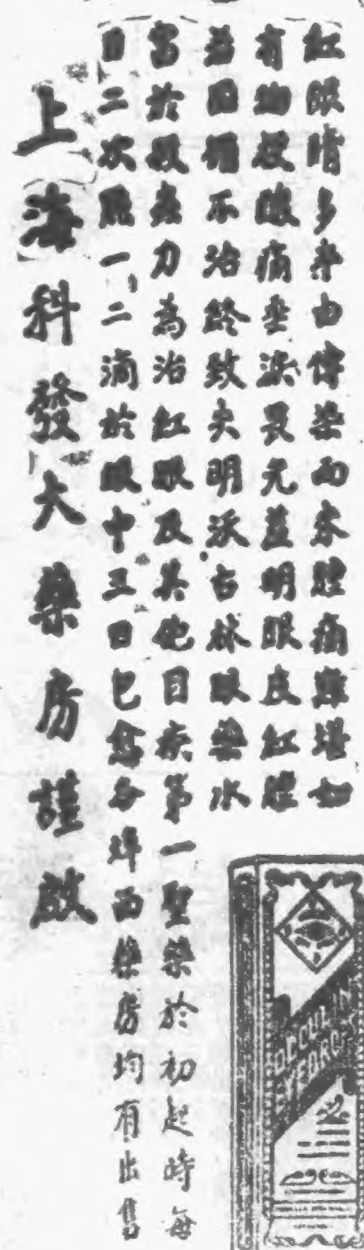 紅眼睛多半由傳染而來腫痛難堪如
有物梗礙痛垂淚畏光羞明眼皮紅腫
若因循不治終致失明沃古林眼藥水
富於殺毒力為治紅眼及其他目疾第一聖藥於初起時每
日二次點一二滴於眼中三日包愈各埠西藥房均有出售
上海科發大藥房謹啟
OCCULIN
EYEDROPS